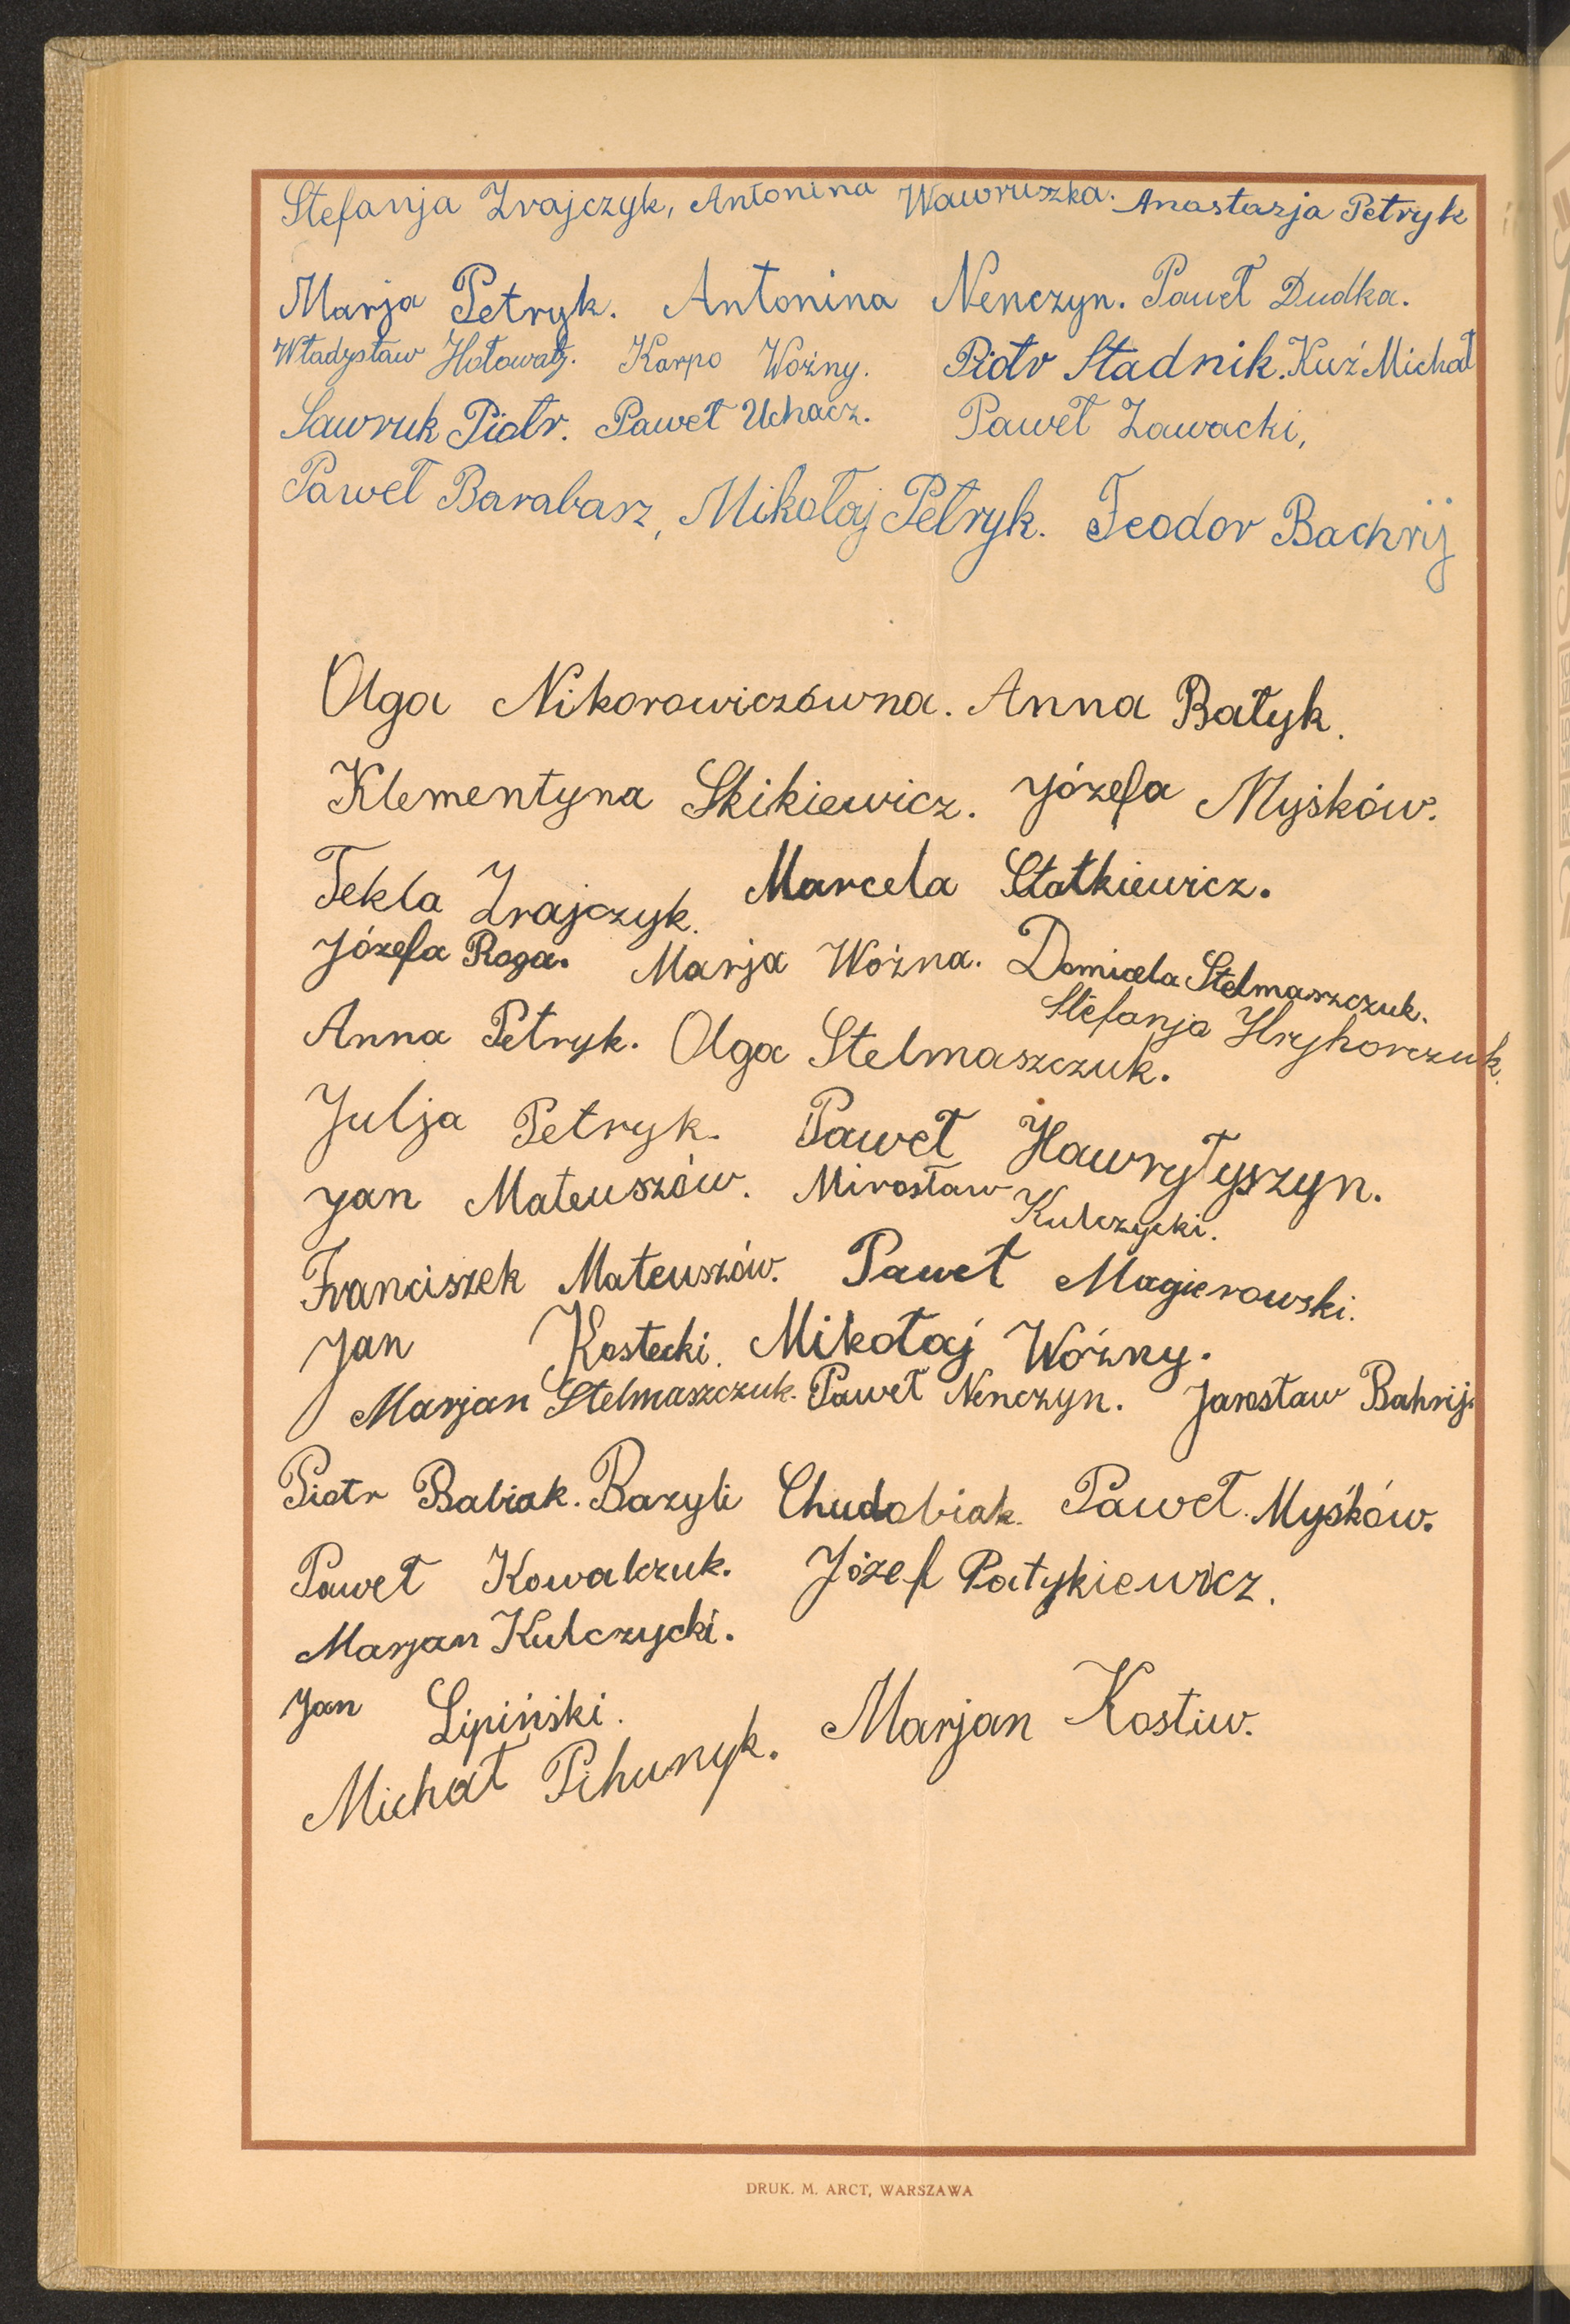 Stefanja Zrajczyk, Antonina Wawruszka. Anastazja Petryk
Marja Petryk. Antonina Nenczyn. Paweł Dudka.
Władysław Hołowatÿ. Karpo Woźny. Piotr Stadnik. Kuź Michał
Sawruk Piotr. Paweł Uchacz. Paweł Zawacki,
Paweł Barabasz, Mikołaj Petryk. Teodor Bachrij
Olga Nikorowiczówna. Anna Bałyk.
Klementyna Skikiewicz. Józefa Myśków.
Tekla Zrajczyk. Marcela Statkiewicz.
Józefa Roga. Marja Woźna. Domicela Stelmaszczuk.
Anna Petryk. Olga Stelmaszczuk. Stefanja Hryhorczuk.
Julja Petryk. Paweł Hawryłyszyn.
Jan Mateuszów. Mirosław Kulczycki.
Franciszek Mateuszów. Paweł Magierowski.
Jan Kostecki. Mikołaj Woźny.
Marjan Stelmaszczuk. Paweł Nenczyn. Jarosław Bahrij.
Piotr Babiak. Bazyli Chudobiak. Paweł Myśków.
Paweł Kowalczuk. Józef Patykiewicz.
Marjan Kulczycki.
Jan Lipiński.
Michał Pihunyk. Marjan Kostiw.
DRUK. M. ARCT, WARSZAWA